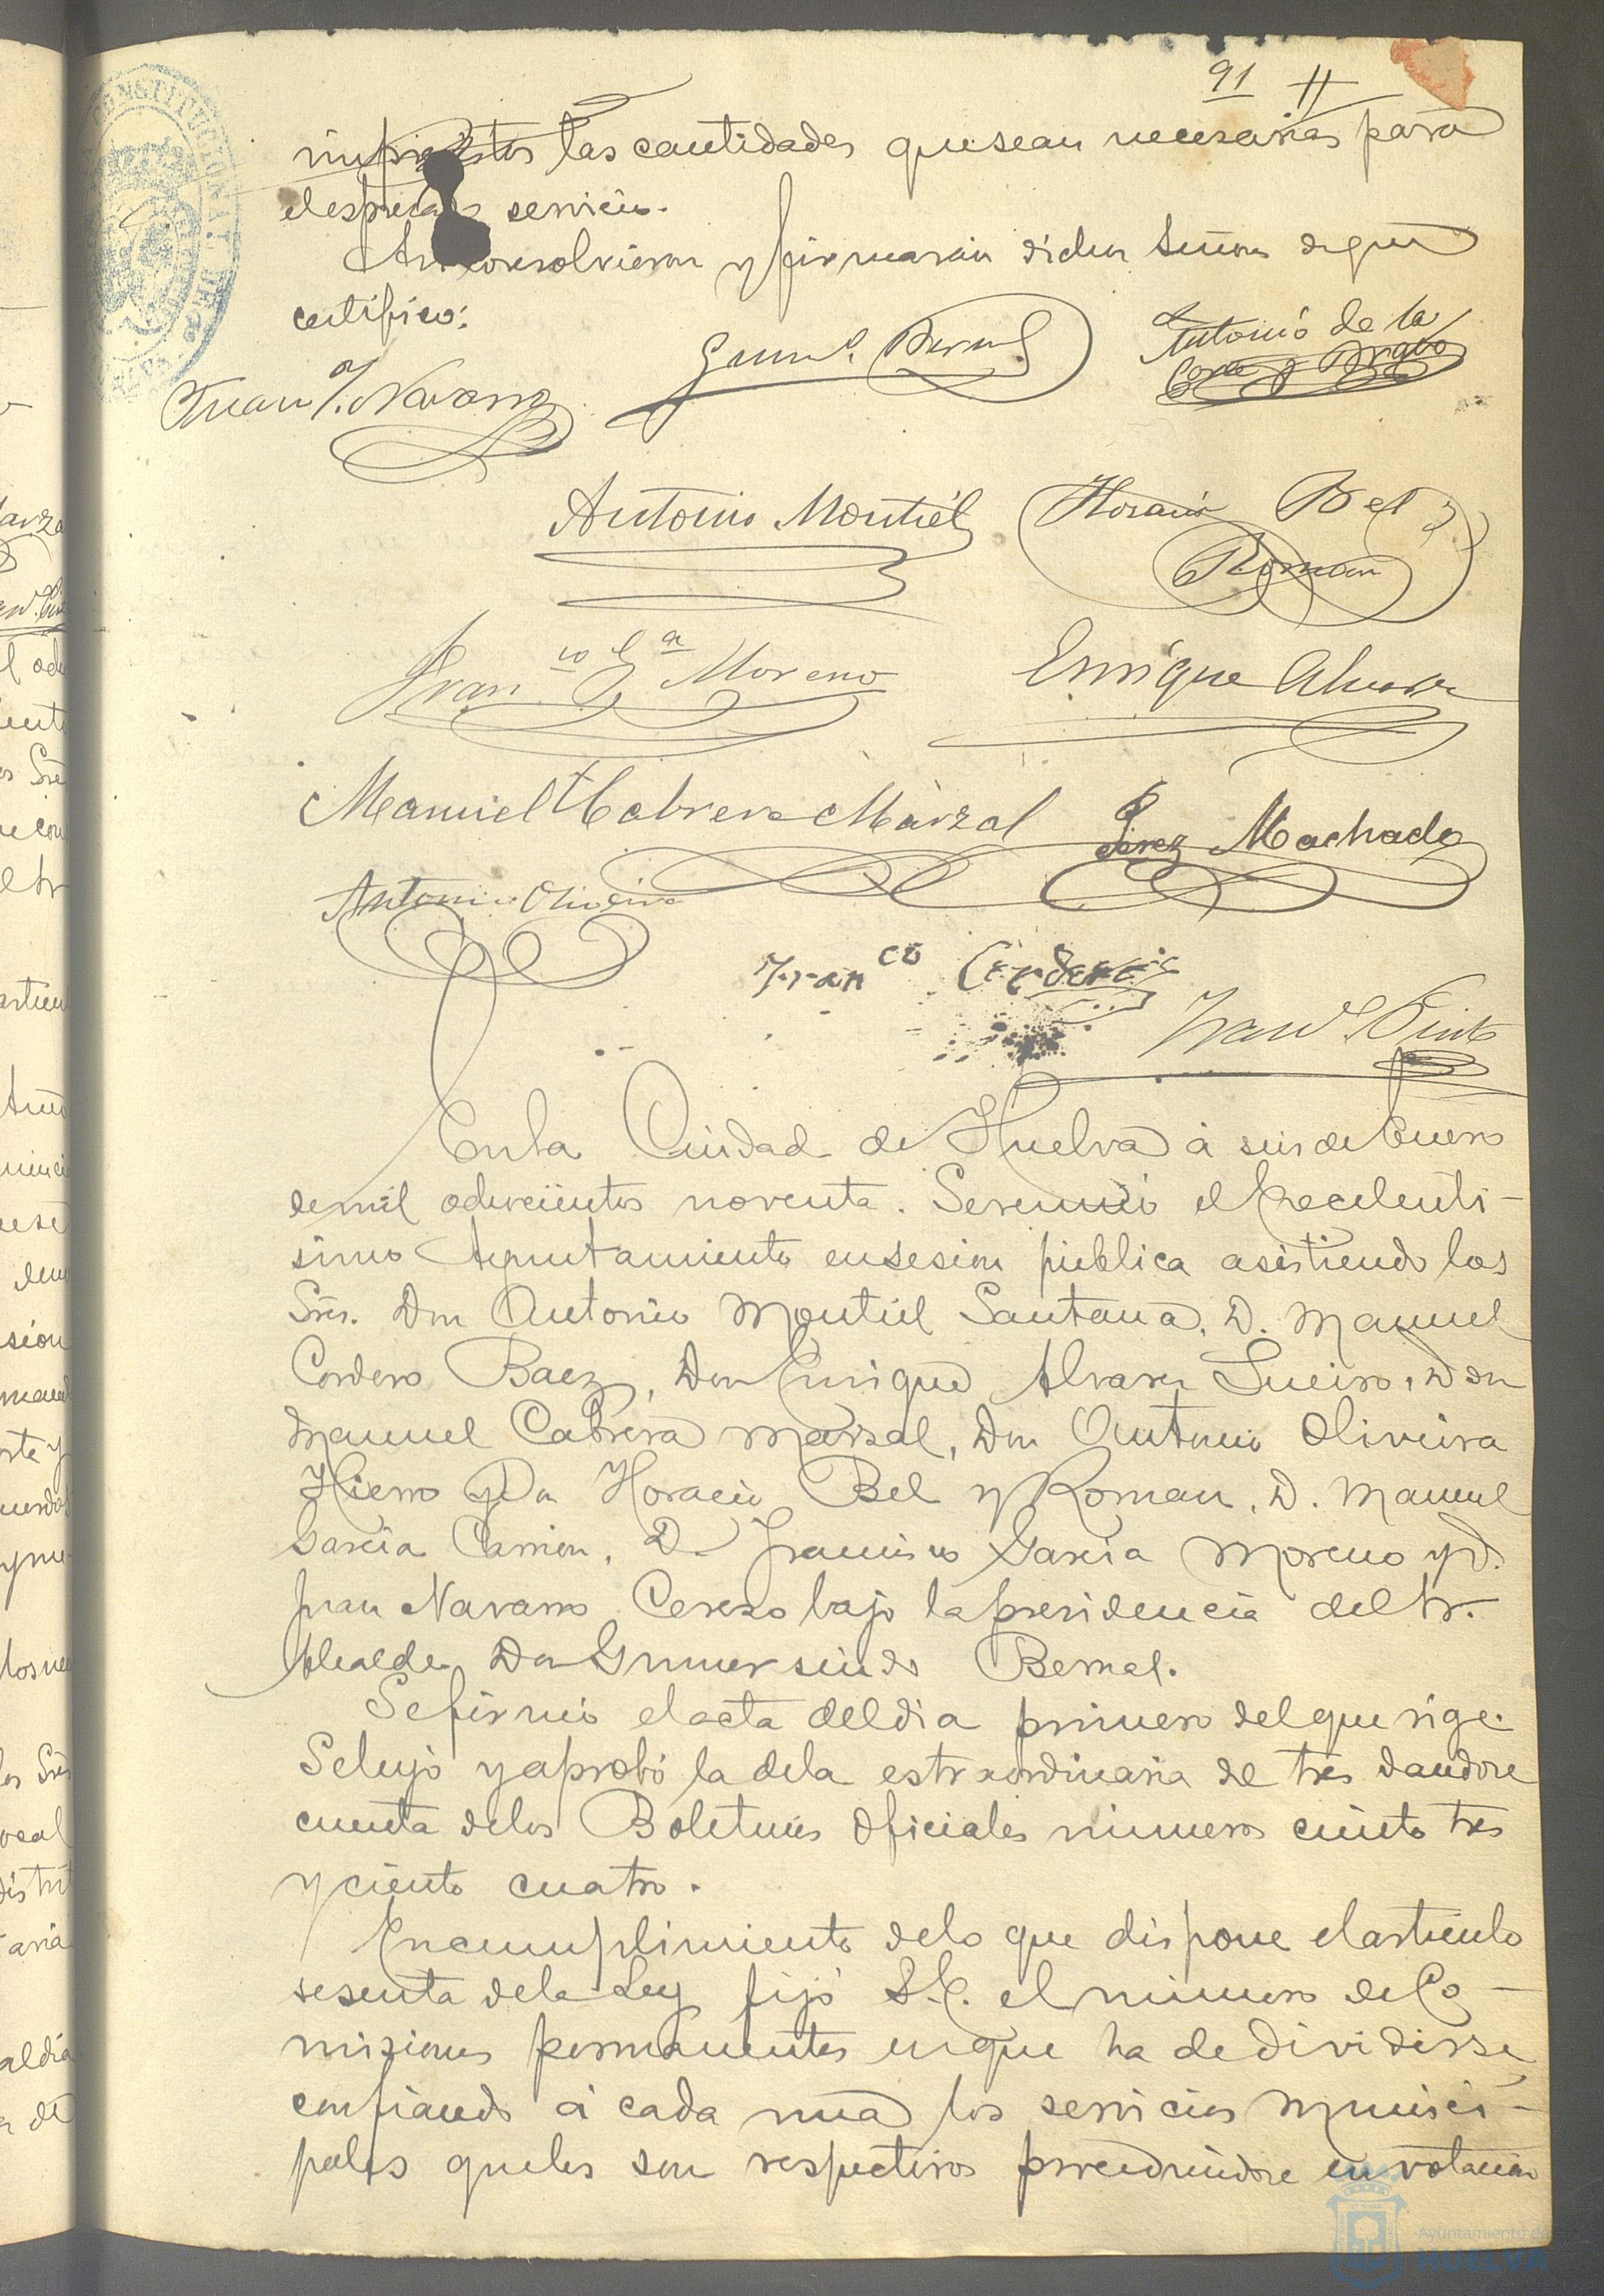 91 11
imprevistos las cantidades que sean necesarias para
el espresado servicio.
Asi lo resolvieron y firmaran dichos Señores de que
certifico:
Gumd. Bernal
Antonio de la
Corte y Bravo
Juan J. Navarro
Antonio Montiel
Horacio Bel y
Roman
Franco Ga Moreno
Enrique Alvarez
Manuel Cabrera Marzal
Perez Machado
Antonio Oliveira
Franco
En la Ciudad de Huelva á seis de Enero
de mil ochocientos noventa. Se reunió el Excelenti-
simo Ayuntamiento en sesion pública asistiendo los
Sres. Don Antonio Montiel Santana, D. Manuel
Cordero Baez, Don Enrique Alvarez Sueiro, Don
Manuel Cabrera Marzal, Don Antonio Oliveira
Hierro y Don Horacio Bel y Roman, D. Manuel
Garcia Carrion, D. Francisco Garcia Moreno y D.
Juan Navarro Cerezo bajo la presidencia del Sr.
Alcalde Don Gumersindo Bernal.
Se firmó el acta del dia primero del que rige.
Se leyó y aprobó la dela estraordinaria de tres dandose
cuenta delos Boletines Oficiales números ciento tres
y ciento cuatro.
En cumplimiento delo que dispone el articulo
sesenta dela Ley fijó S.E. el número de Co-
misiones permanentes en que ha de dividirse
confiando á cada una los servicios Munici-
pales que les son respectivos procediendose en votacion
Ayuntamiento de
HUELVA